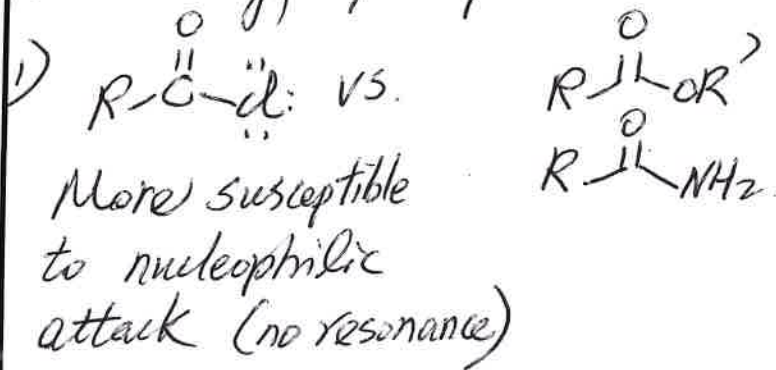 1) R-C(=O)-Cl: vs. R-C(=O)-OR'
R-C(=O)-NH2
More susceptible
to nucleophilic
attack (no resonance)